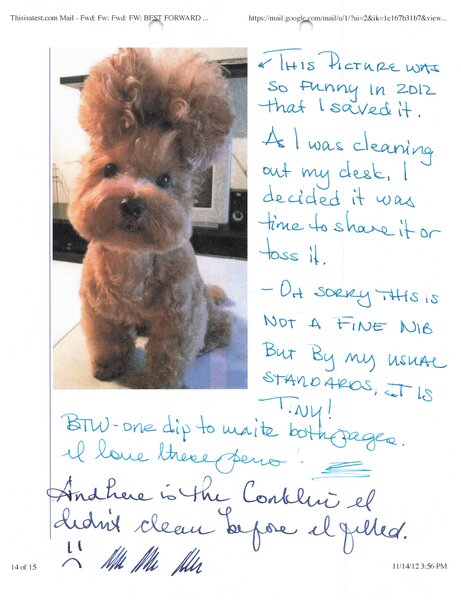 Thisisatest.com Mail - Fwd: Fw: Fwd: FW: BEST FORWARD ...
https://mail.google.com/mail/u/1/?ui=2&ik=1c167b31b7&view...
THIS PICTURE WAS
so funny in 2012
that I saved it.
As I was cleaning
out my desk, I
decided it was
time to share it or
toss it.
- OH SORRY THIS IS
NOT A FINE NIB
BUT BY MY USUAL
STANDARDS, IT IS
TINY!
BTW-one dip to write both pages.
I love these pens!
And here is the Conklin I
didn't clean before I filled.
14 of 15
11/14/12 3:56 PM